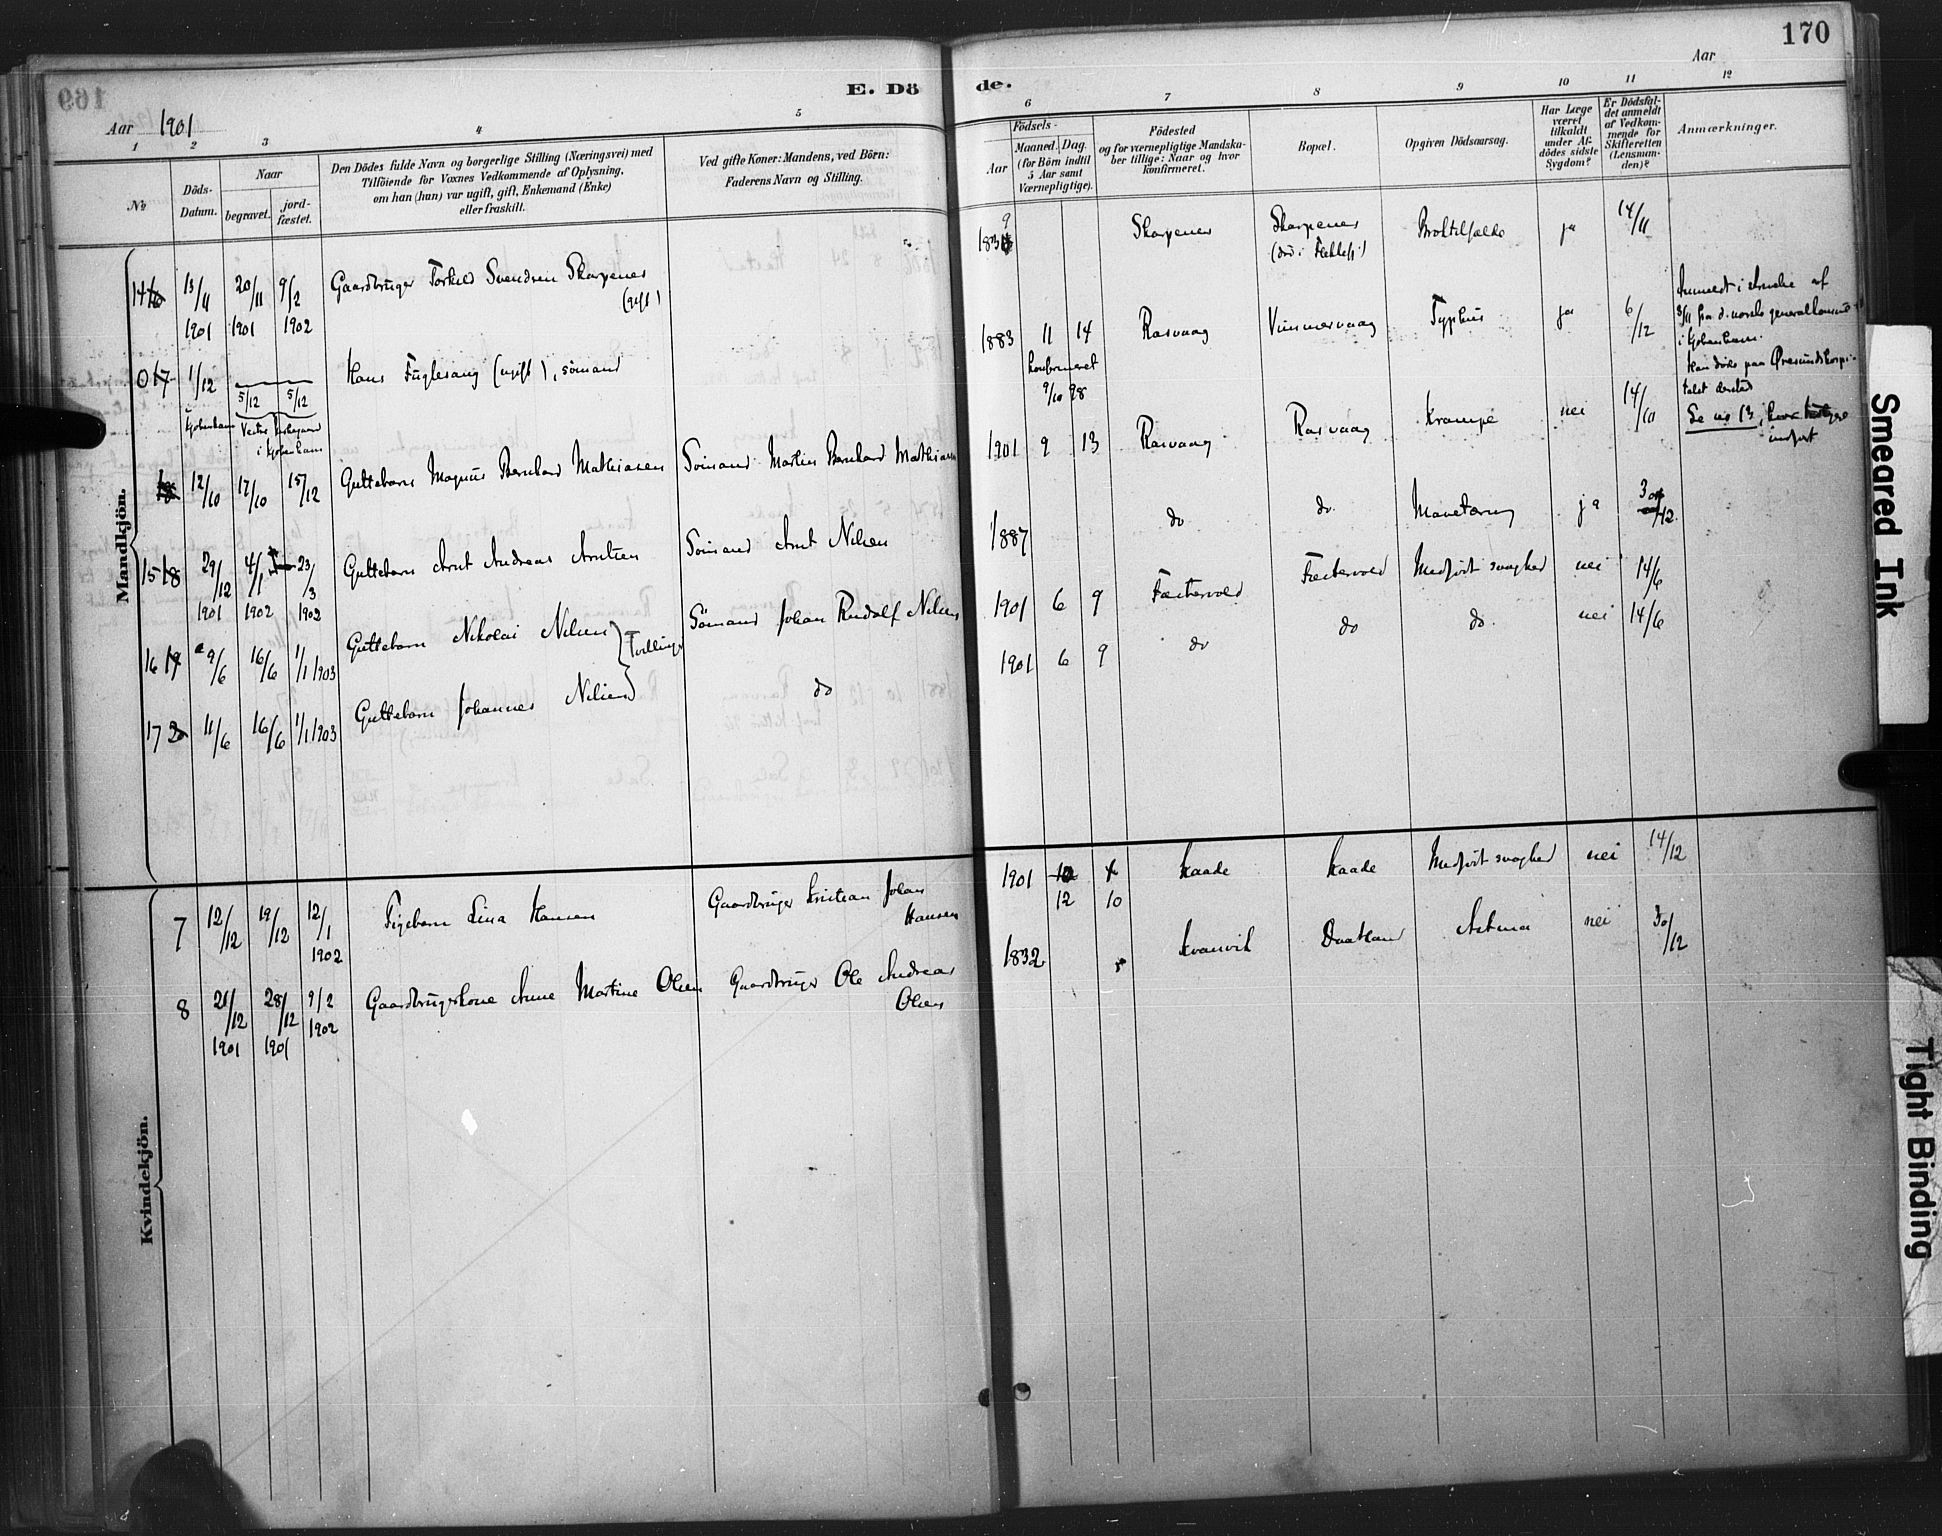 170
E. Döde.
Aar 1901
Aar
1 2 3 4 5 6 7 8 9 10 11 12
No.
Döds-
Datum.
Naar
begravet.
jord-
fæstet.
Den Dödes fulde Navn og borgerlige Stilling (Næringsvei) med
Tilföiende for Voxnes Vedkommende af Oplysning,
om han (hun) var ugift, gift, Enkemand (Enke)
eller fraskilt.
Ved gifte Koner: Mandens, ved Börn:
Faderens Navn og Stilling.
Födsels-
Aar
Maaned. Dag.
(for Börn indtil
5 Aar samt
Værnepligtige).
Födested
og for værnepligtige Mandska-
ber tillige: Naar og hvor
konfirmeret.
Bopæl.
Opgiven Dödsaarsag.
Har Læge
været
tilkaldt
under Af-
dödes sidste
Sygdom?
Er Dödsfal-
det anmeldt
af Vedkom-
mende for
Skifteretten
(Lensman-
den)?
Anmærkninger.
Mandkjön.
14 13/11 1901 20/11 1901 9/2 1902 Gaardbruger Torkild Svendsen Skarpenes (gift) 1839 Skarpenes Skarpenes ja 14/11
017 1/12 5/12 5/12 Hans Fuglesang (ugift), sømand 1883 11 14 Rasvaag Typhus ja 6/12
Kjøbenhavn Vestre Kirkegaard
i Kjøbenhavn
konfirmeret
9/10 98
i Kjøbenhavn.
Han døde paa Øresundshospi-
talet dersted
12/10 17/10 15/12 Guttebarn Magnus Bernhard Mathiasen Sømand Martin Bernhard Mathiasen 1901 9 13 Rasvaag Rasvaag krampe nei 14/10 Se no 13, hvor
indført
15 18 29/12 1901 4/1 1902 23/3 1902 Guttebarn Arnt Andreas Arntsen Sømand Arnt Nilsen 1887 do do Mavetæring ja
16 19 9/6 16/6 1/1 1903 Guttebarn Nikolai Nilsen Tvillinger Sømand Johan Rudolf Nilsen 1901 6 9 Medfødt svaghed nei 14/6
17 20 11/6 16/6 1/1 1903 Guttebarn Johannes Nilsen do 1901 6 9 do do do. nei 14/6
Kvindekjön.
7 12/12 19/12 12/1 1902 Pigebarn Lina Hansen Gaardbruger Kristian Johan Hansen 1901 12 10 Kaade Kaade Medfødt svaghed nei 14/12
8 21/12 1901 28/12 1901 9/2 1902 Gaardbrugerkone Anne Martine Olsen Gaardbruger Ole Andreas Olsen 1832 Kvanvik Daatland Astma nei 30/12
Smeared Ink
Tight Binding